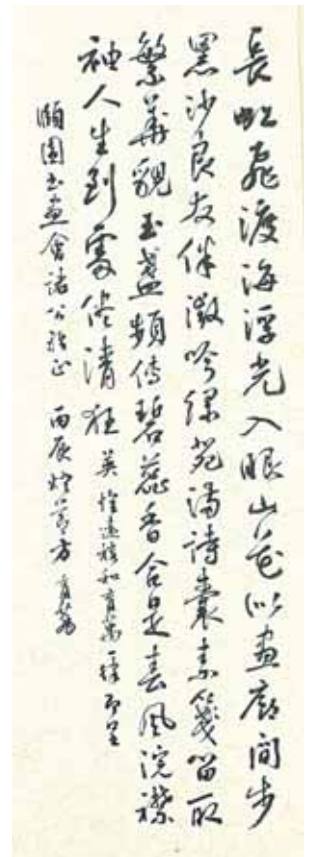 長虹飛渡海浮光入眼山花似畫廊間步
黑沙良友伴微吟綠苑滿詩囊素箋留取
繁華貌玉盞頻傳碧蕊香合是春風浣襟
袖人生到處侭清狂 和育萬 一律即呈
頤園书畫會諸公雅正 丙辰灯節方育萬